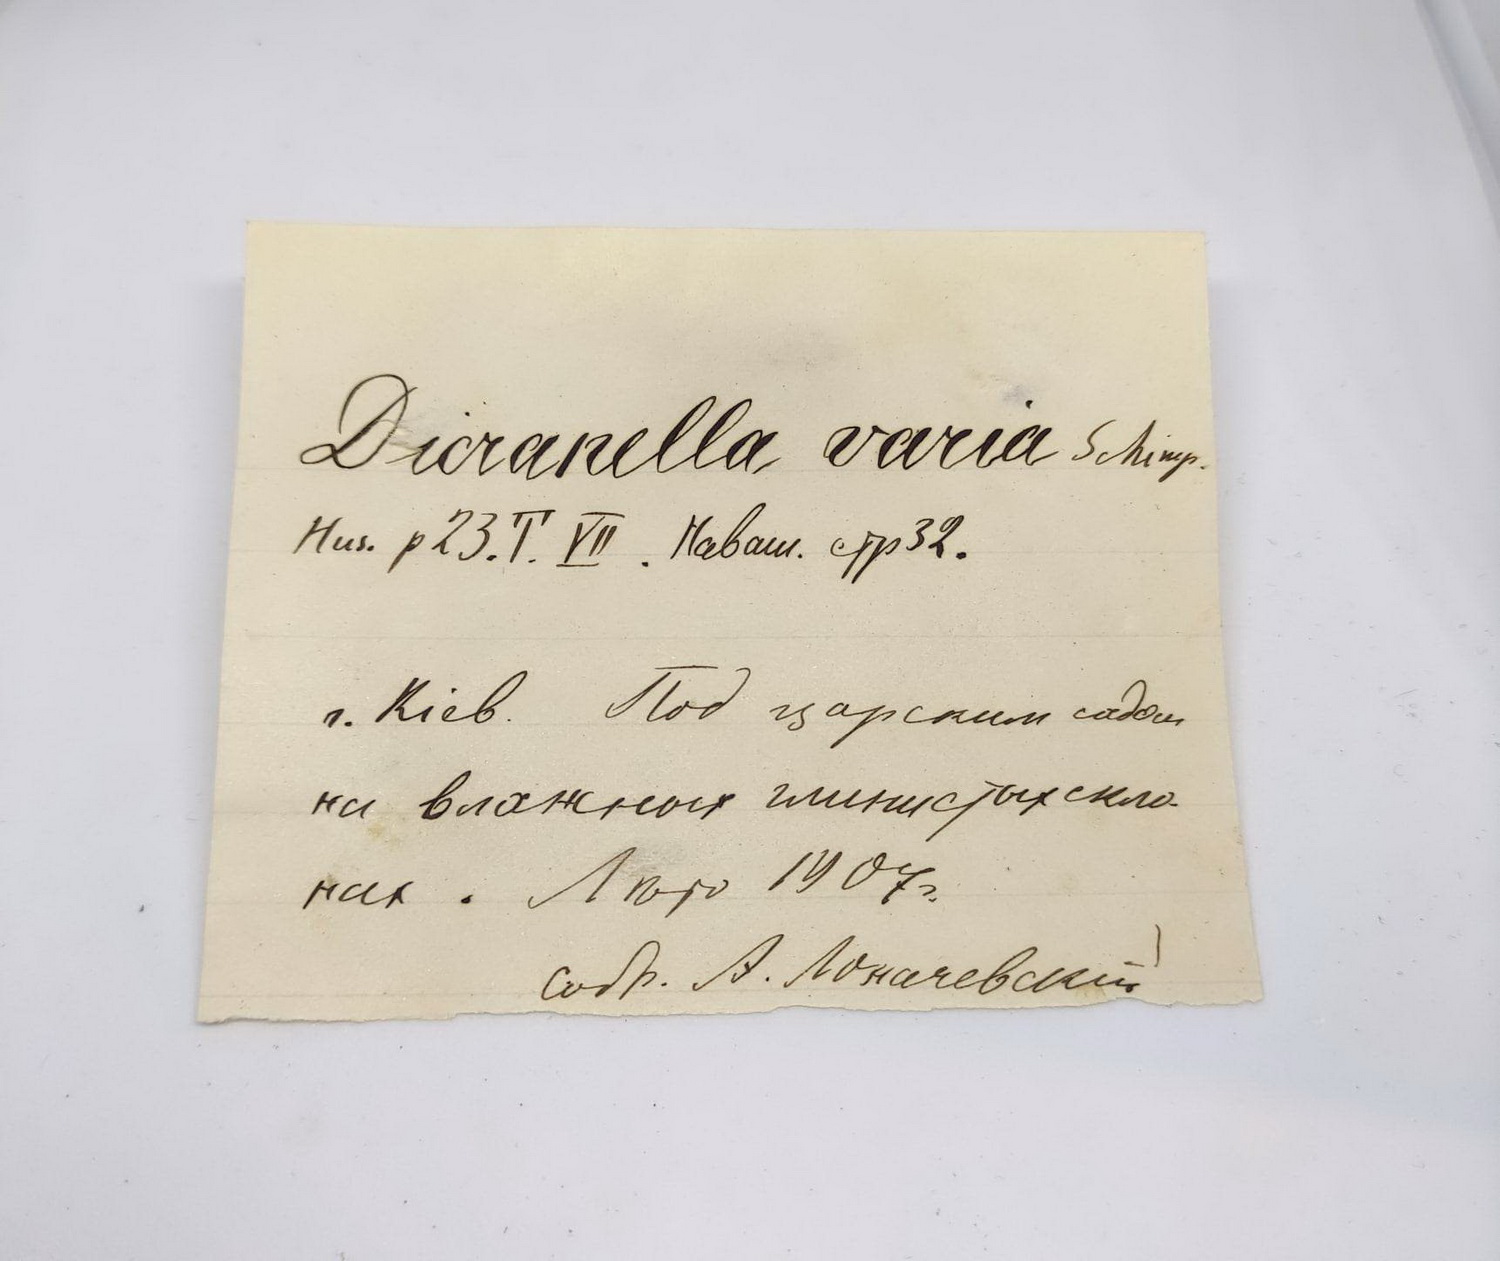 Dicranella varia Schimp.
Hus. p 23. T. VII. Наваш. стр 32.
г. Кіев. Под царским садом
на влажных глинистых скло-
нах. Лето 1907 г.
собр. А. Лоначевский